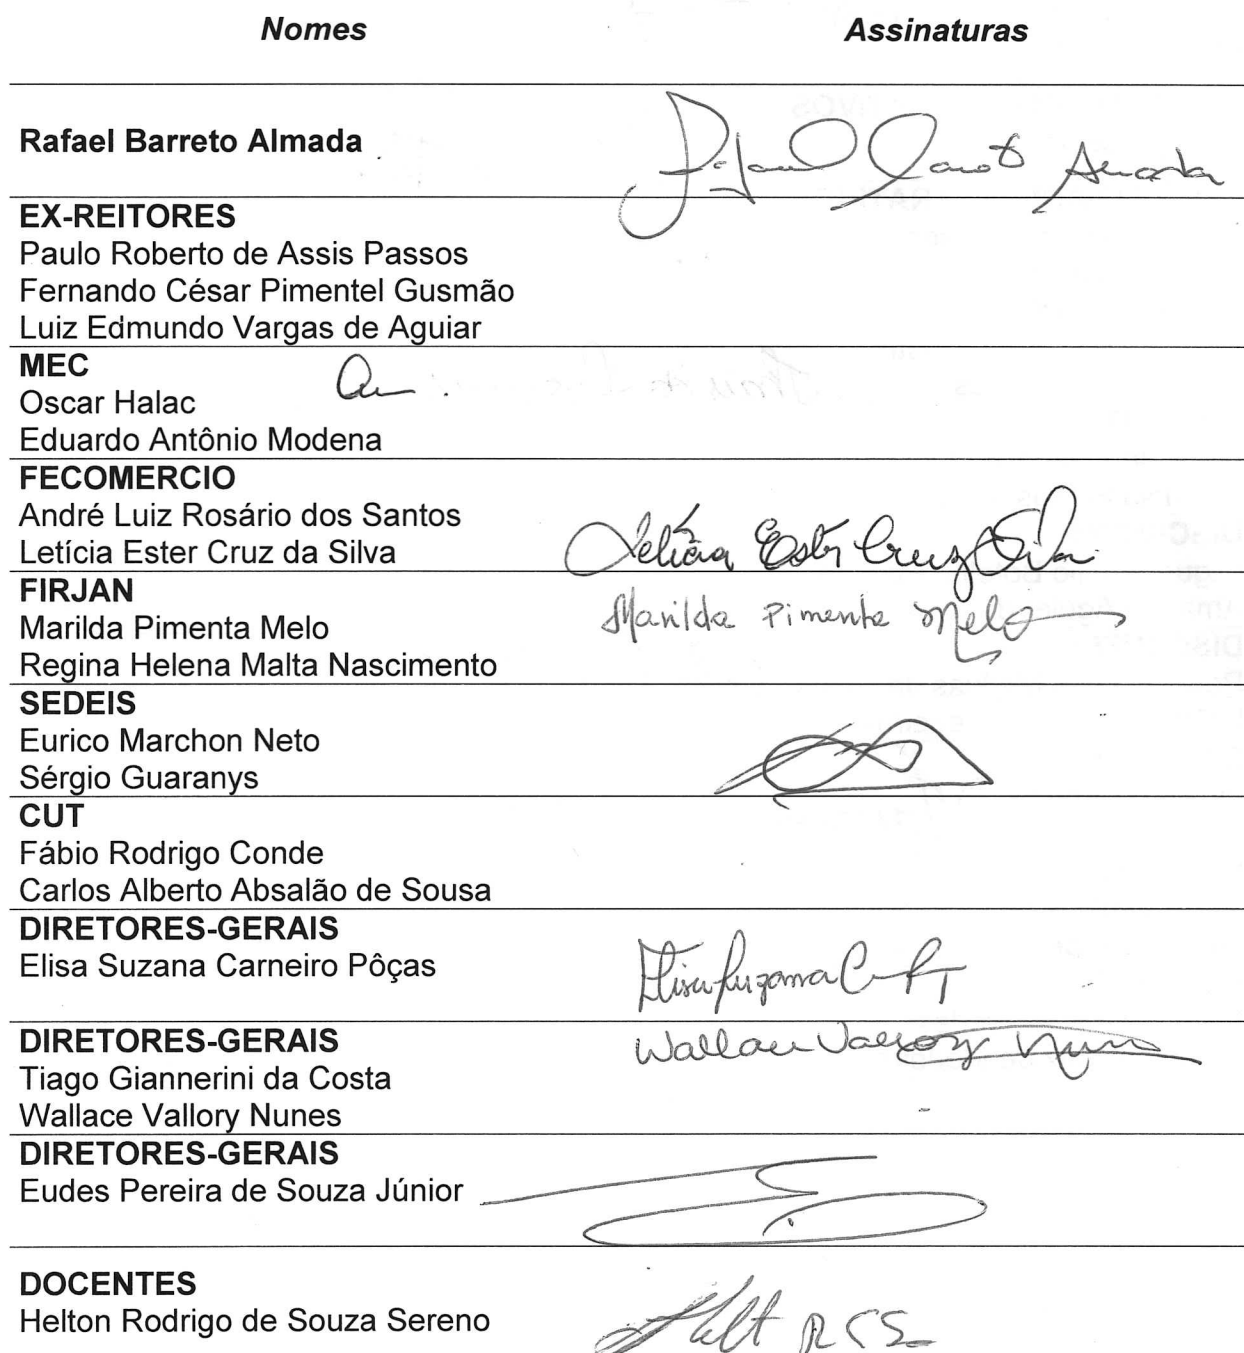 Nomes Assinaturas
Rafael Barreto Almada
EX-REITORES
Paulo Roberto de Assis Passos
Fernando César Pimentel Gusmão
Luiz Edmundo Vargas de Aguiar
MEC
Oscar Halac
Eduardo Antônio Modena
FECOMERCIO
André Luiz Rosário dos Santos
Letícia Ester Cruz da Silva Letícia Ester Cruz Silva
FIRJAN
Marilda Pimenta Melo Marilda Pimenta Melo
Regina Helena Malta Nascimento
SEDEIS
Eurico Marchon Neto
Sérgio Guaranys
CUT
Fábio Rodrigo Conde
Carlos Alberto Absalão de Sousa
DIRETORES-GERAIS
Elisa Suzana Carneiro Pôças
DIRETORES-GERAIS Wallace Vallory Nunes
Tiago Giannerini da Costa
Wallace Vallory Nunes
DIRETORES-GERAIS
Eudes Pereira de Souza Júnior
DOCENTES
Helton Rodrigo de Souza Sereno